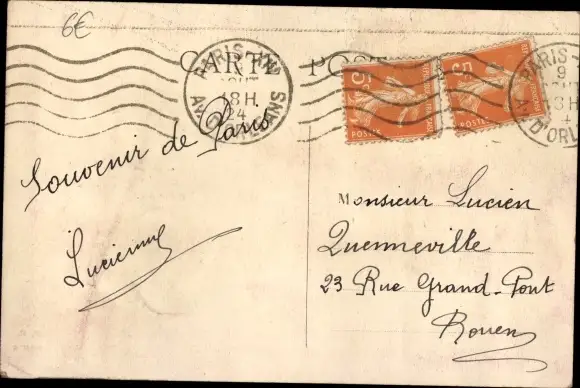 6€
CARTE POSTALE
PARIS XIV
AOUT
18H
24
AV. D'ORLEANS
5
POSTES
5
POSTES
PARIS
9
18H
AV. D'ORL
Souvenir de Paris
Lucienne
Monsieur Lucien
Quenneville
23 Rue Grand-Pont
Rouen